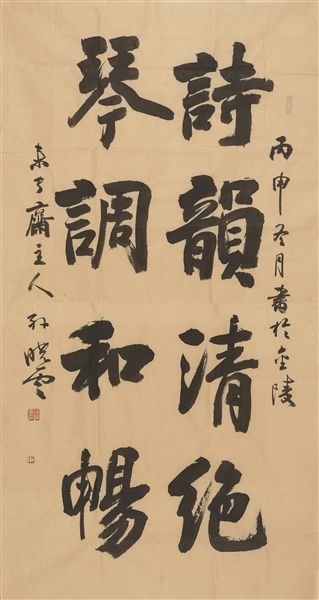 丙申冬月書於金陵
詩韻清絶
琴調和暢
未了齋主人孫曉雲